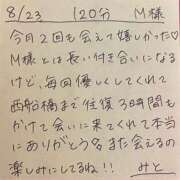 8/23 120分 M様
今月2回も会えて嬉しかった♡
M様とは長い付き合いになる
けど、毎回優しくしてくれて
西船橋まで往復3時間も
かけて会いに来てくれて本当
にありがとう。また会えるの
楽しみにしてるね!! みと